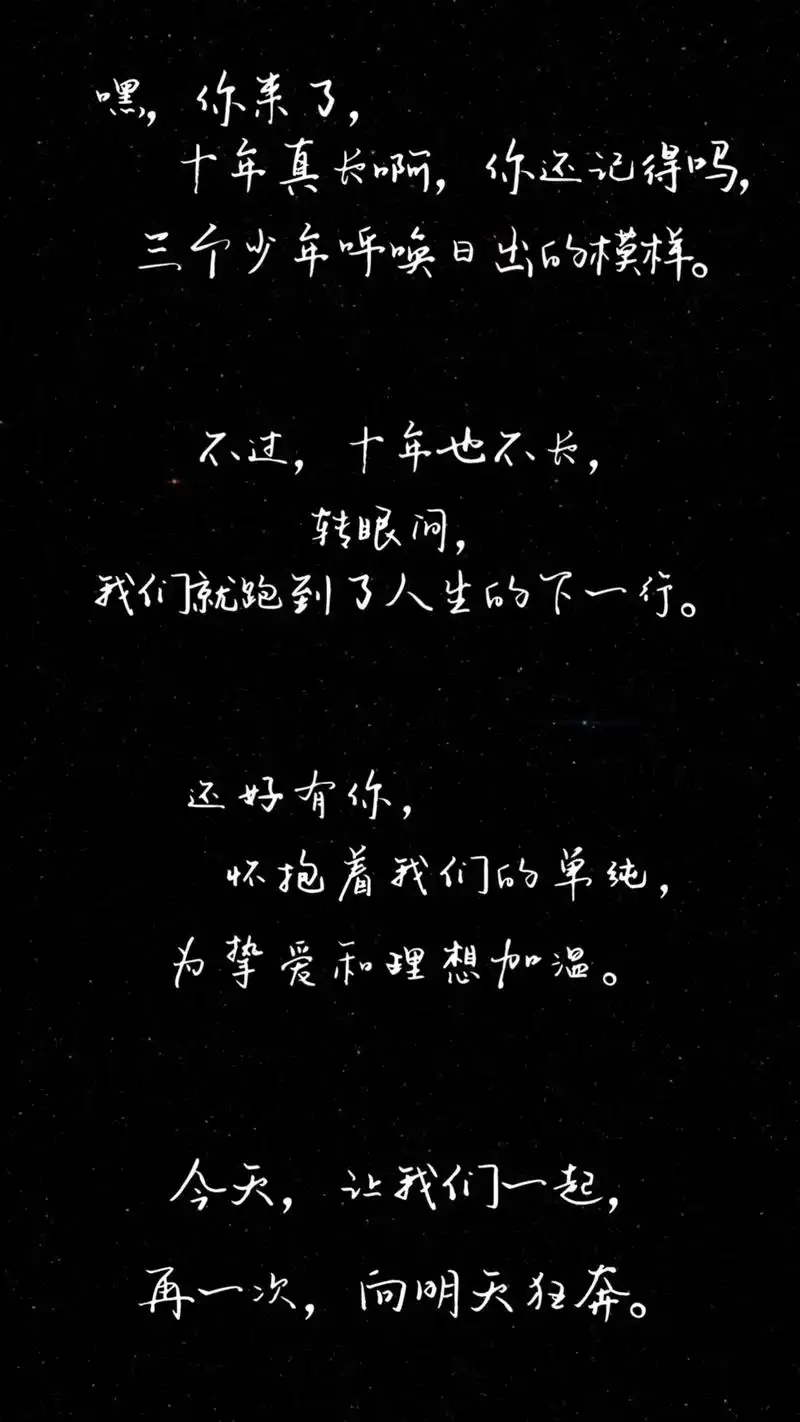 嘿，你来了，
十年真长啊，你还记得吗，
三个少年呼唤日出的模样。
不过，十年也不长，
转眼间，
我们就跑到了人生的下一行。
还好有你，
怀抱着我们的单纯，
为挚爱和理想加温。
今天，让我们一起，
再一次，向明天狂奔。